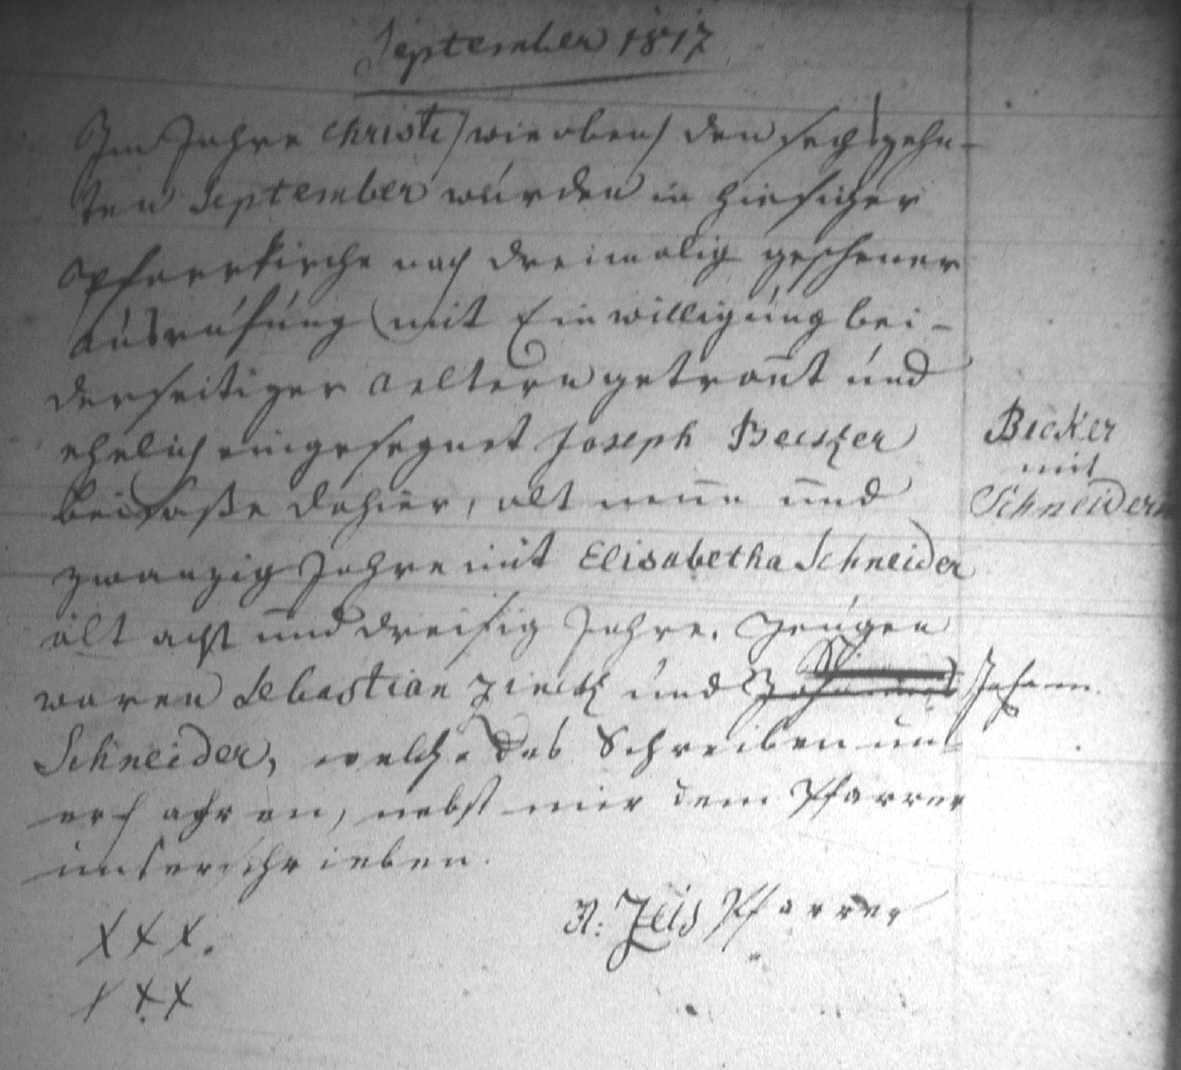 September 1817
Im Jahre Christi (wie oben) den sechszehn-
ten September wurden in hiesiger
Pfarrkirche nach dreimalig geschener
Ausrufung mit Einwilligung bei-
derseitiger Aeltern getraut und
ehelich eingesegnet Joseph Becker
Beisaße dahier, alt neun und
zwanzig Jahre mit Elisabetha Schneider
alt acht und dreisig Jahre. Zeugen
waren Sebastian und Johann
Schneider, welche des Schreiben un-
erfahren, nebst mir dem Pfarrer
unterschrieben.
XXX.
XXX
N: Zeis Pfarrer
Becker
mit
Schneidern